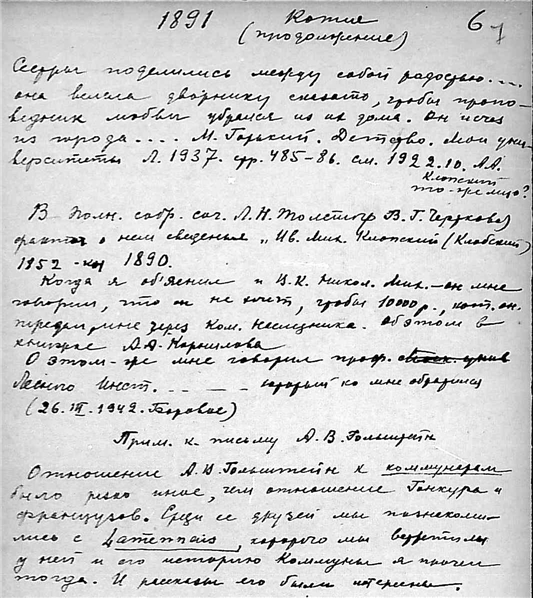 1891 Котие 61
(продолжение)
Сестры поделились между собой радостью....
она велела дворнику сказать, чтобы пропо-
ведник любви убрался из их дома. Он исчез
из города.... М. Горький. Детство. Мои уни-
верситеты Л. 1937. стр. 485-86. см. 1922.10. А.А.
Клопский
то-же лицо?
В Полн. собр. соч. Л.Н. Толстого В.Г. Черткова)
о нем сведенья „Ив. Мих. Клопский (Клобский)
1852 - 1890.
Когда я об'яснил и В.К. Никол. Мих. - он мне
говорил, что он не хочет, чтобы 10000 р., кот. он
передал мне через Ком. Несмеянова. Об этом в
книжке А.А. Корнилова
О этом-же мне говорил проф.
Лесного Инст. . _ _ . _ который ко мне обратился
(26.III.1942. Боровое)
Прим. к письму А.В. Гольштейн
Отношение А.В. Гольштейн к коммунарам
было резко иное, чем отношение Гонкура и
французов. Среди ее друзей мы познакоми-
лись с Lamennais, которого мы встретили
у ней и его историю Коммуны я прочел
тогда. И рассказы его были интересны.